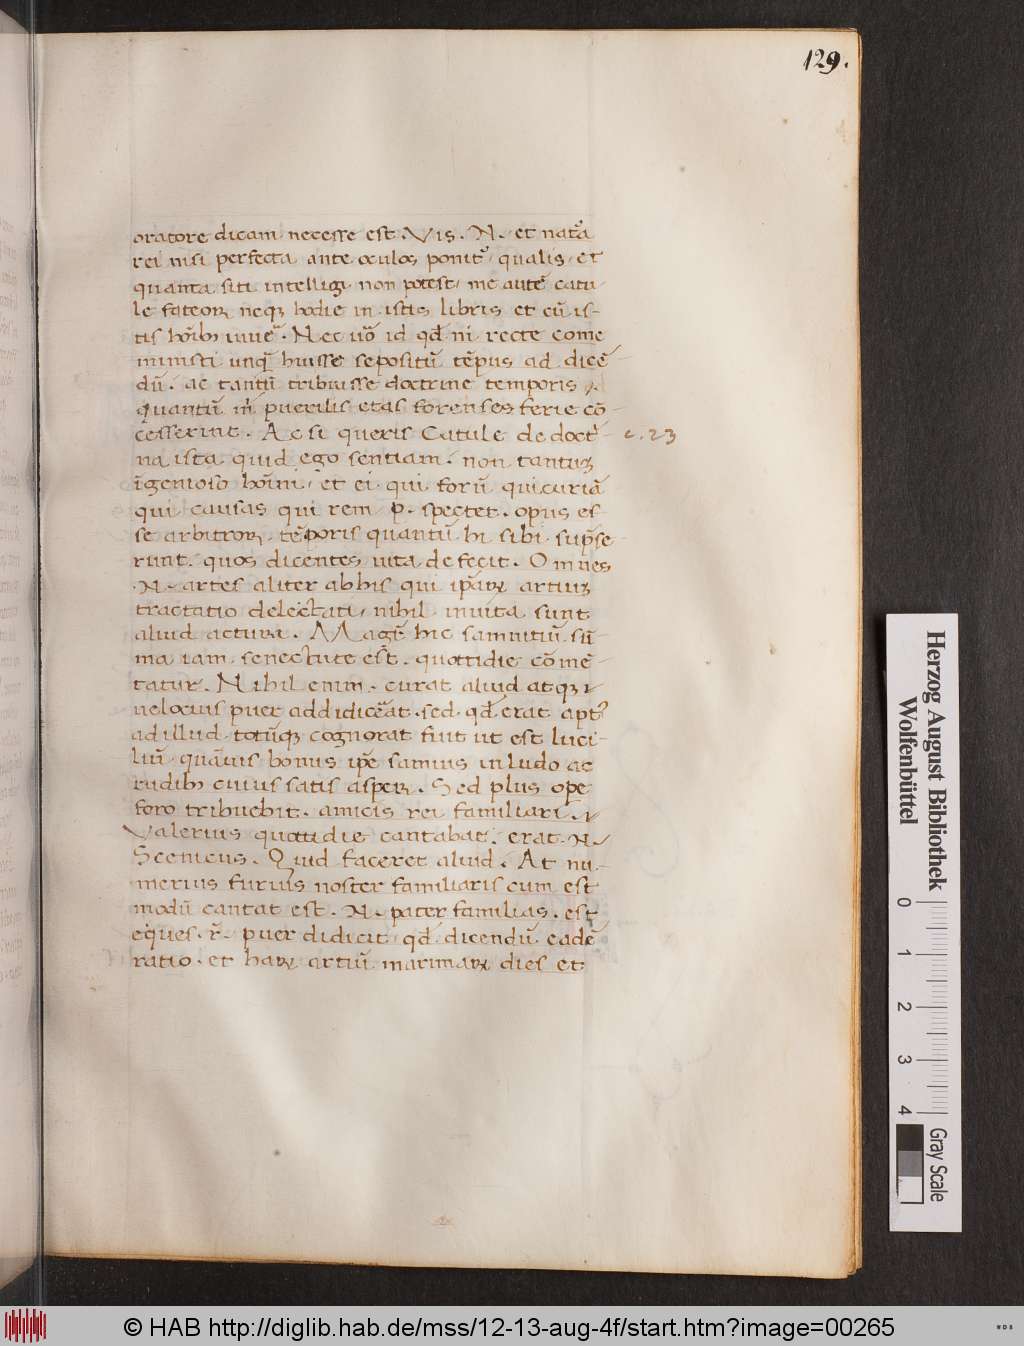 129.
oratore dicam necesse est. Vis .N. et natã
rei nisi perfecta ante oculos ponit᷑, qualis, et
quanta siti intelligi, non potest, me autẽ catu-
le fateor neq; hodie in istis libris et cũ is-
tis hoĩbȝ
Nec uõ id qđ ni recte come
ministi unq̃ huisse sepositũ tẽpus ad dicẽ-
dũ. ac tantũ tribuisse doctrine temporis
quantũ m̃ puerilis etas forenses ferie cõ-
cesserint. Ac si queris Catule de doct᷑-
na ista quid ego sentiam. non tantuȝ
ĩgenioso hoĩni, et ei qui forũ qui curiã
qui causas qui rem .p. spectet. opus es-
se arbitror. tẽporis quantũ hi sibi sũpse
runt. quos dicentes uita defecit. Omnes
.N. artes aliter ab his qui ip̃aꝝ artiuȝ
tractatio delectati, nihil inuita sunt
aliud acturi. Magr̃ hic samnitiũ sũ-
ma iam senectute est. quottidie cõmẽ-
tatur. Nihil enim. curat aliud atq;
uelocius puer addidicẽat. sed qđ erat apt᷑
ad illud totũq; cognorat fuit ut est luci-
liũ. quãuis bonus ip̃e samius in ludo ac
rudibȝ cuiuis satis asper. Sed plus ope
foro tribuebit. amicis rei familiari.
Valerius quottidie cantabat. erat .N.
Scenicus. Quid faceret aliud. At nu-
merius furius noster familiaris cum est
modũ cantat est .N. pater familias. est
eques .r̃. puer didicit qđ dicendũ. eadẽ
ratio. et haꝝ artiũ marimaꝝ dies et
c. 23
Herzog August Bibliothek
Wolfenbüttel
0 1 2 3 4
Gray Scale
© HAB http://diglib.hab.de/mss/12-13-aug-4f/start.htm?image=00265